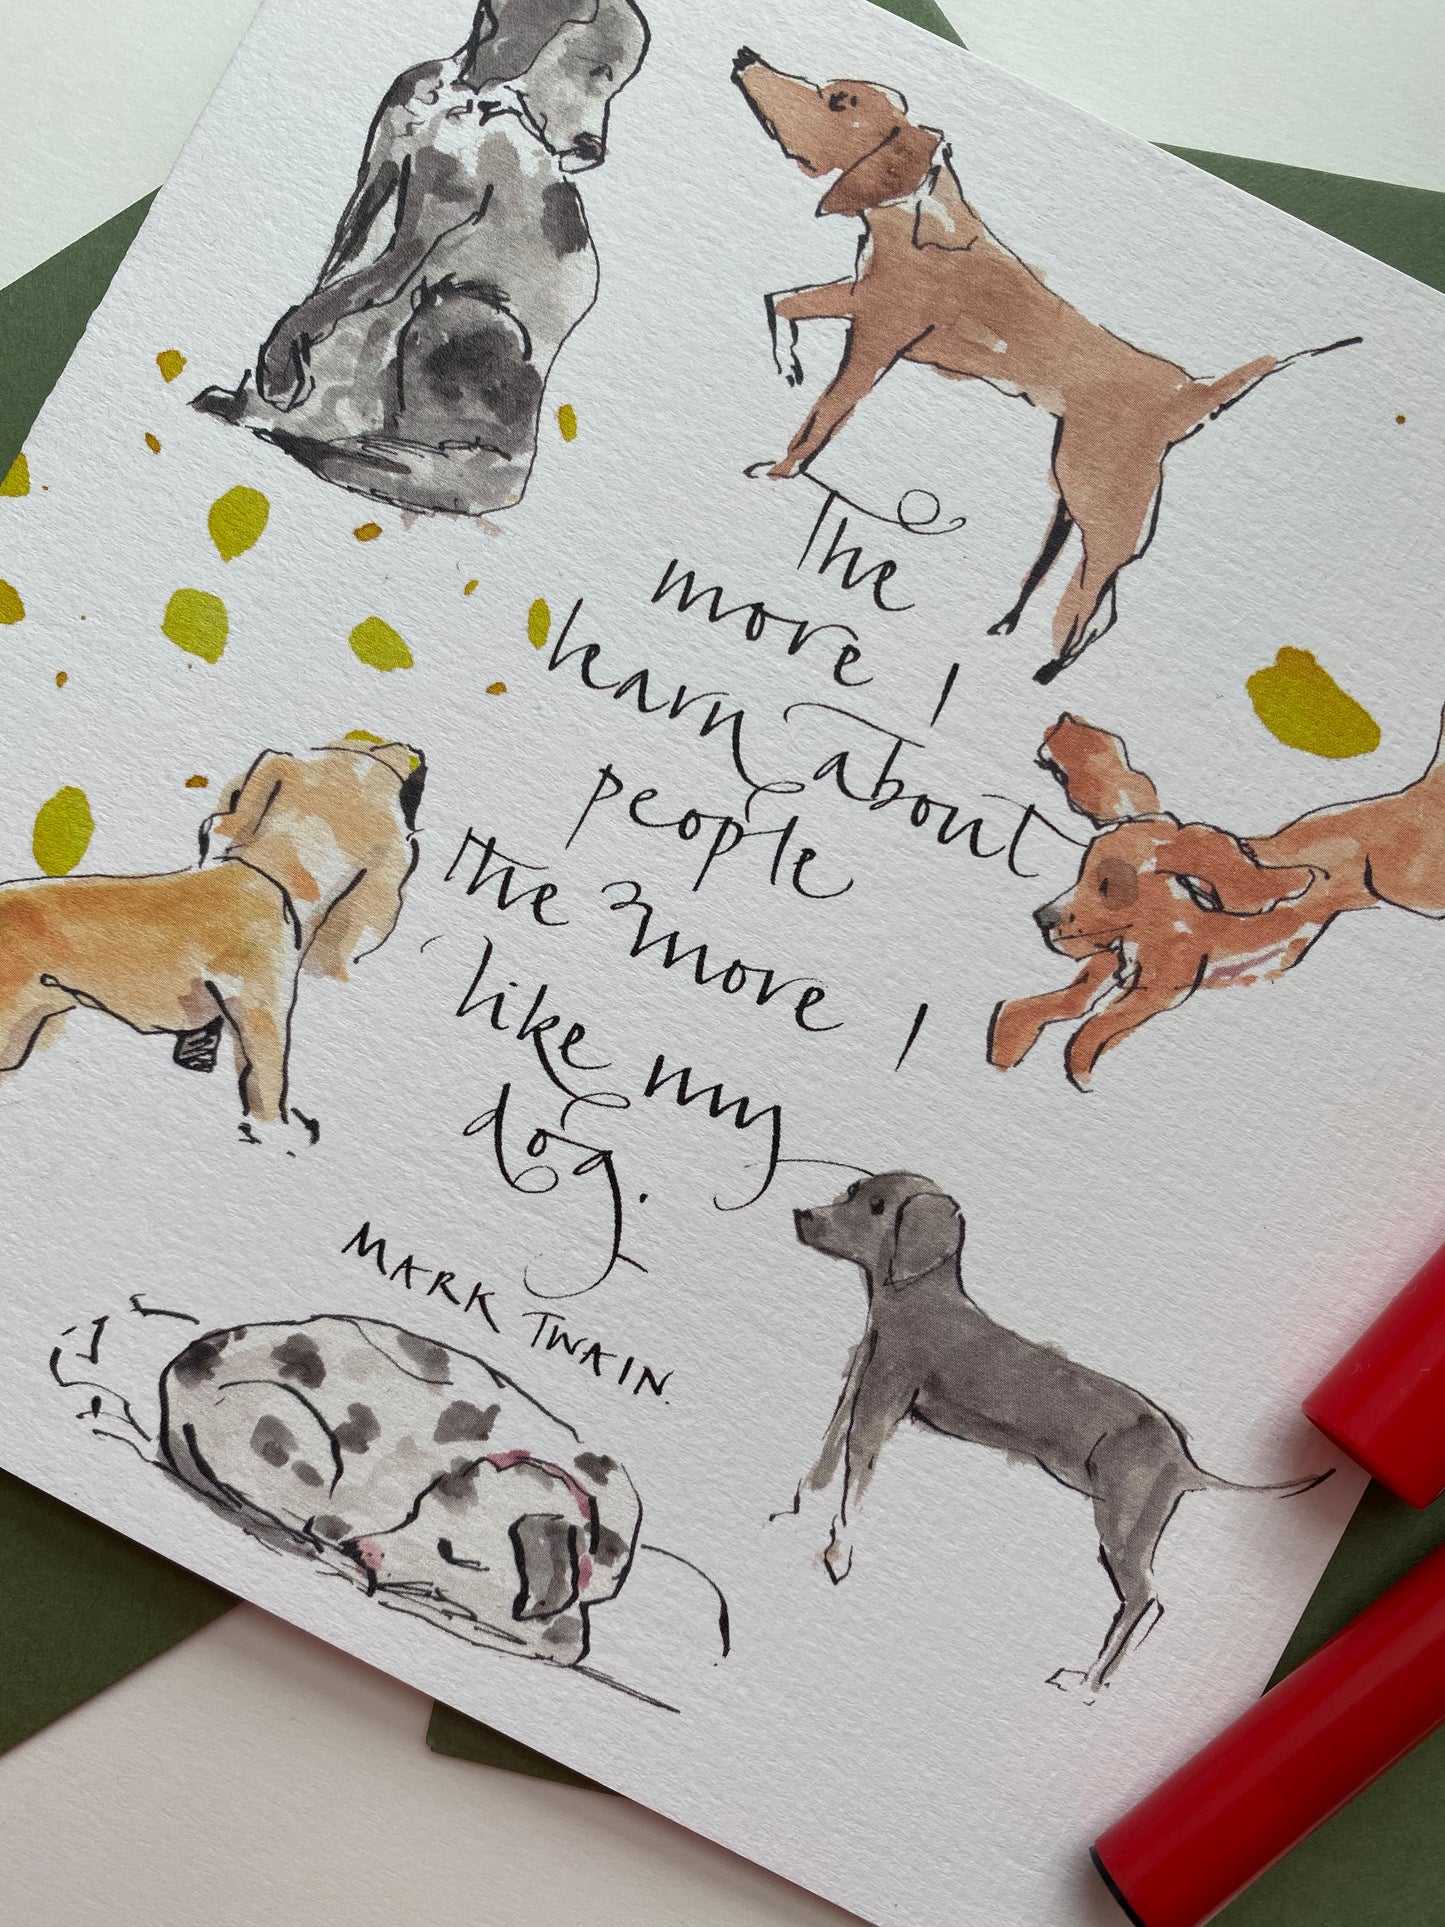 The
more I
learn about
people
the more I
like my
dog.
MARK TWAIN.